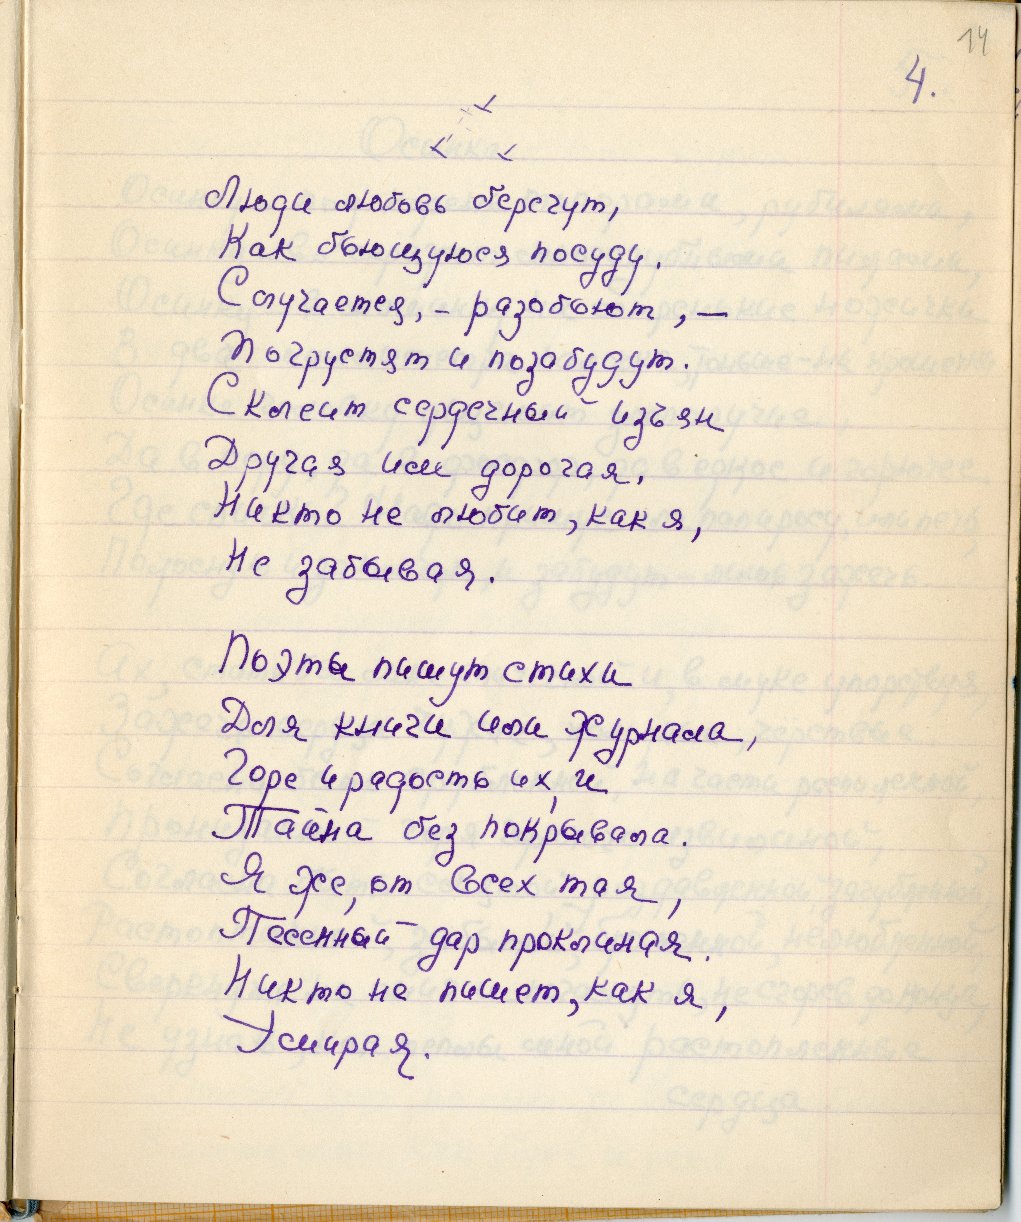 14
4.
Люди любовь берегут,
Как бьющуюся посуду.
Случается, – разобьют, –
Погрустят и позабудут.
Склеит сердечный изъян
Другая или дорогая.
Никто не любит, как я,
Не забывая.
Поэты пишут стихи
Для книги или журнала,
Горе и радость их, и
Тайна без покрывала.
Я же, от всех тая,
Песенный дар проклиная.
Никто не пишет, как я,
Умирая.